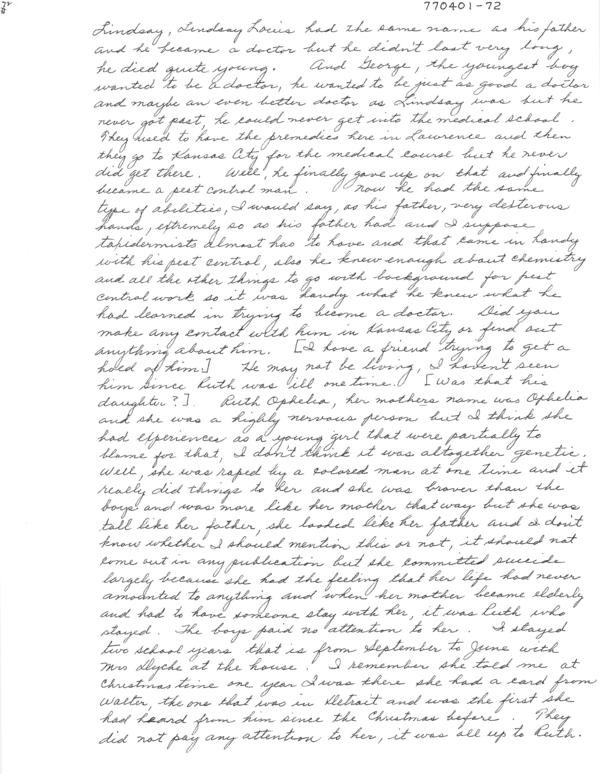 72
770401-72
Lindsay, Lindsay Louis had the same name as his father
and he became a doctor but he didn't last very long,
he died quite young. And George, the youngest boy
wanted to be a doctor, he wanted to be just as good a doctor
and maybe an even better doctor as Lindsay was but he
never got past, he could never get into the medical school.
They used to have the premedics here in Lawrence and then
they go to Kansas City for the medical course but he never
did get there. Well, he finally gave up on that and finally
became a pest control man. Now he had the same
type of abilities, I would say, as his father, very dexterous
hands, extremely so as his father had and I suppose
taxidermists almost has to have and that came in handy
with his pest control, also he knew enough about chemistry
and all the other things to go with background for pest
control work so it was handy what he knew what he
had learned in trying to become a doctor. Did you
make any contact with him in Kansas City or find out
anything about him. [I have a friend trying to get a
hold of him] He may not be living, I haven't seen
him since Ruth was ill one time. [Was that his
daughter?] Ruth Ophelia, her mothers name was Ophelia
and she was a highly nervous person but I think she
had experiences as a young girl that were partially to
blame for that, I don't think it was altogether genetic.
Well, she was raped by a colored man at one time and it
really did things to her and she was braver than the
boys and was more like her mother that way but she was
tall like her father, she looked like her father and I don't
know whether I should mention this or not, it should not
come out in any publication but she committed suicide
largely because she had the feeling that her life had never
amounted to anything and when her mother became elderly
and had to have someone stay with her, it was Ruth who
stayed. The boys paid no attention to her. I stayed
two school years that is from September to June with
Mrs Dyche at the house. I remember she told me at
Christmas time one year I was there she had a card from
Walter, the one that was in Detroit and was the first she
had heard from him since the Christmas before. They
did not pay any attention to her, it was all up to Ruth.